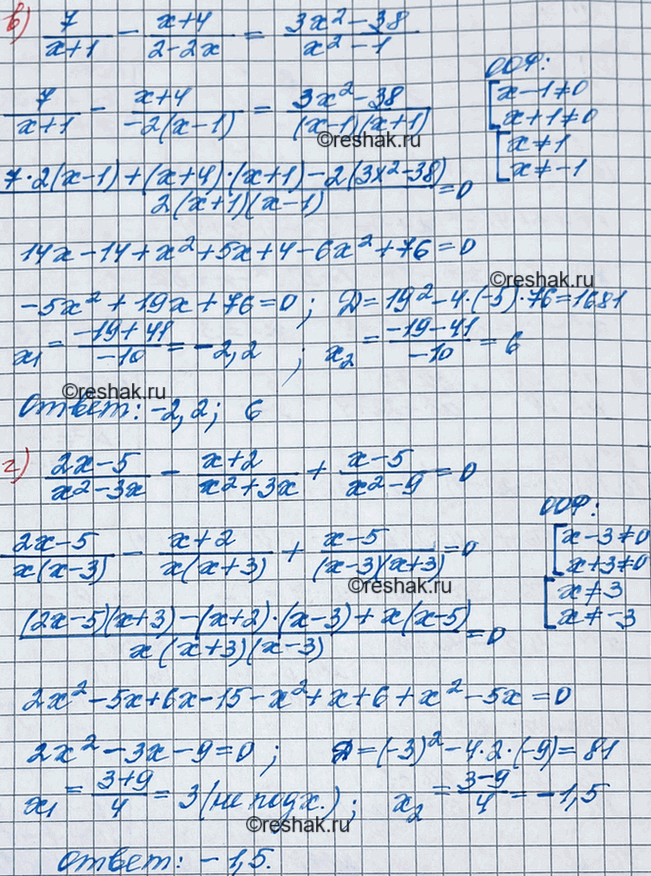 в) 7/(x+1) − (x+4)/(2−2x) = (3x²−38)/(x²−1)
ООФ:
7/(x+1) − (x+4)/(−2(x−1)) = (3x²−38)/((x−1)(x+1))
[x−1≠0
x+1≠0
[x≠1
x≠−1
(7·2(x−1)+(x+4)·(x+1)−2(3x²−38))/(2(x+1)(x−1)) =0
14x−14+x²+5x+4−6x²+76=0
©reshak.ru
−5x²+19x+76=0; D=19²−4·(−5)·76=1681
x₁=(−19+41)/(−10)=−2,2; x₂=(−19−41)/(−10)=6
©reshak.ru
Ответ: −2,2; 6
г) (2x−5)/(x²−3x) − (x+2)/(x²+3x) + (x−5)/(x²−9) =0
ООФ:
(2x−5)/(x(x−3)) − (x+2)/(x(x+3)) + (x−5)/((x−3)(x+3)) =0
[x−3≠0
x+3≠0
[x≠3
x≠−3
©reshak.ru
((2x−5)(x+3)−(x+2)·(x−3)+x(x−5))/(x(x+3)(x−3)) =0
2x²−5x+6x−15−x²+x+6+x²−5x=0
2x²−3x−9=0; D=(−3)²−4·2·(−9)=81
x₁=(3+9)/4=3(не подх.); x₂=(3−9)/4=−1,5
©reshak.ru
Ответ: −1,5.